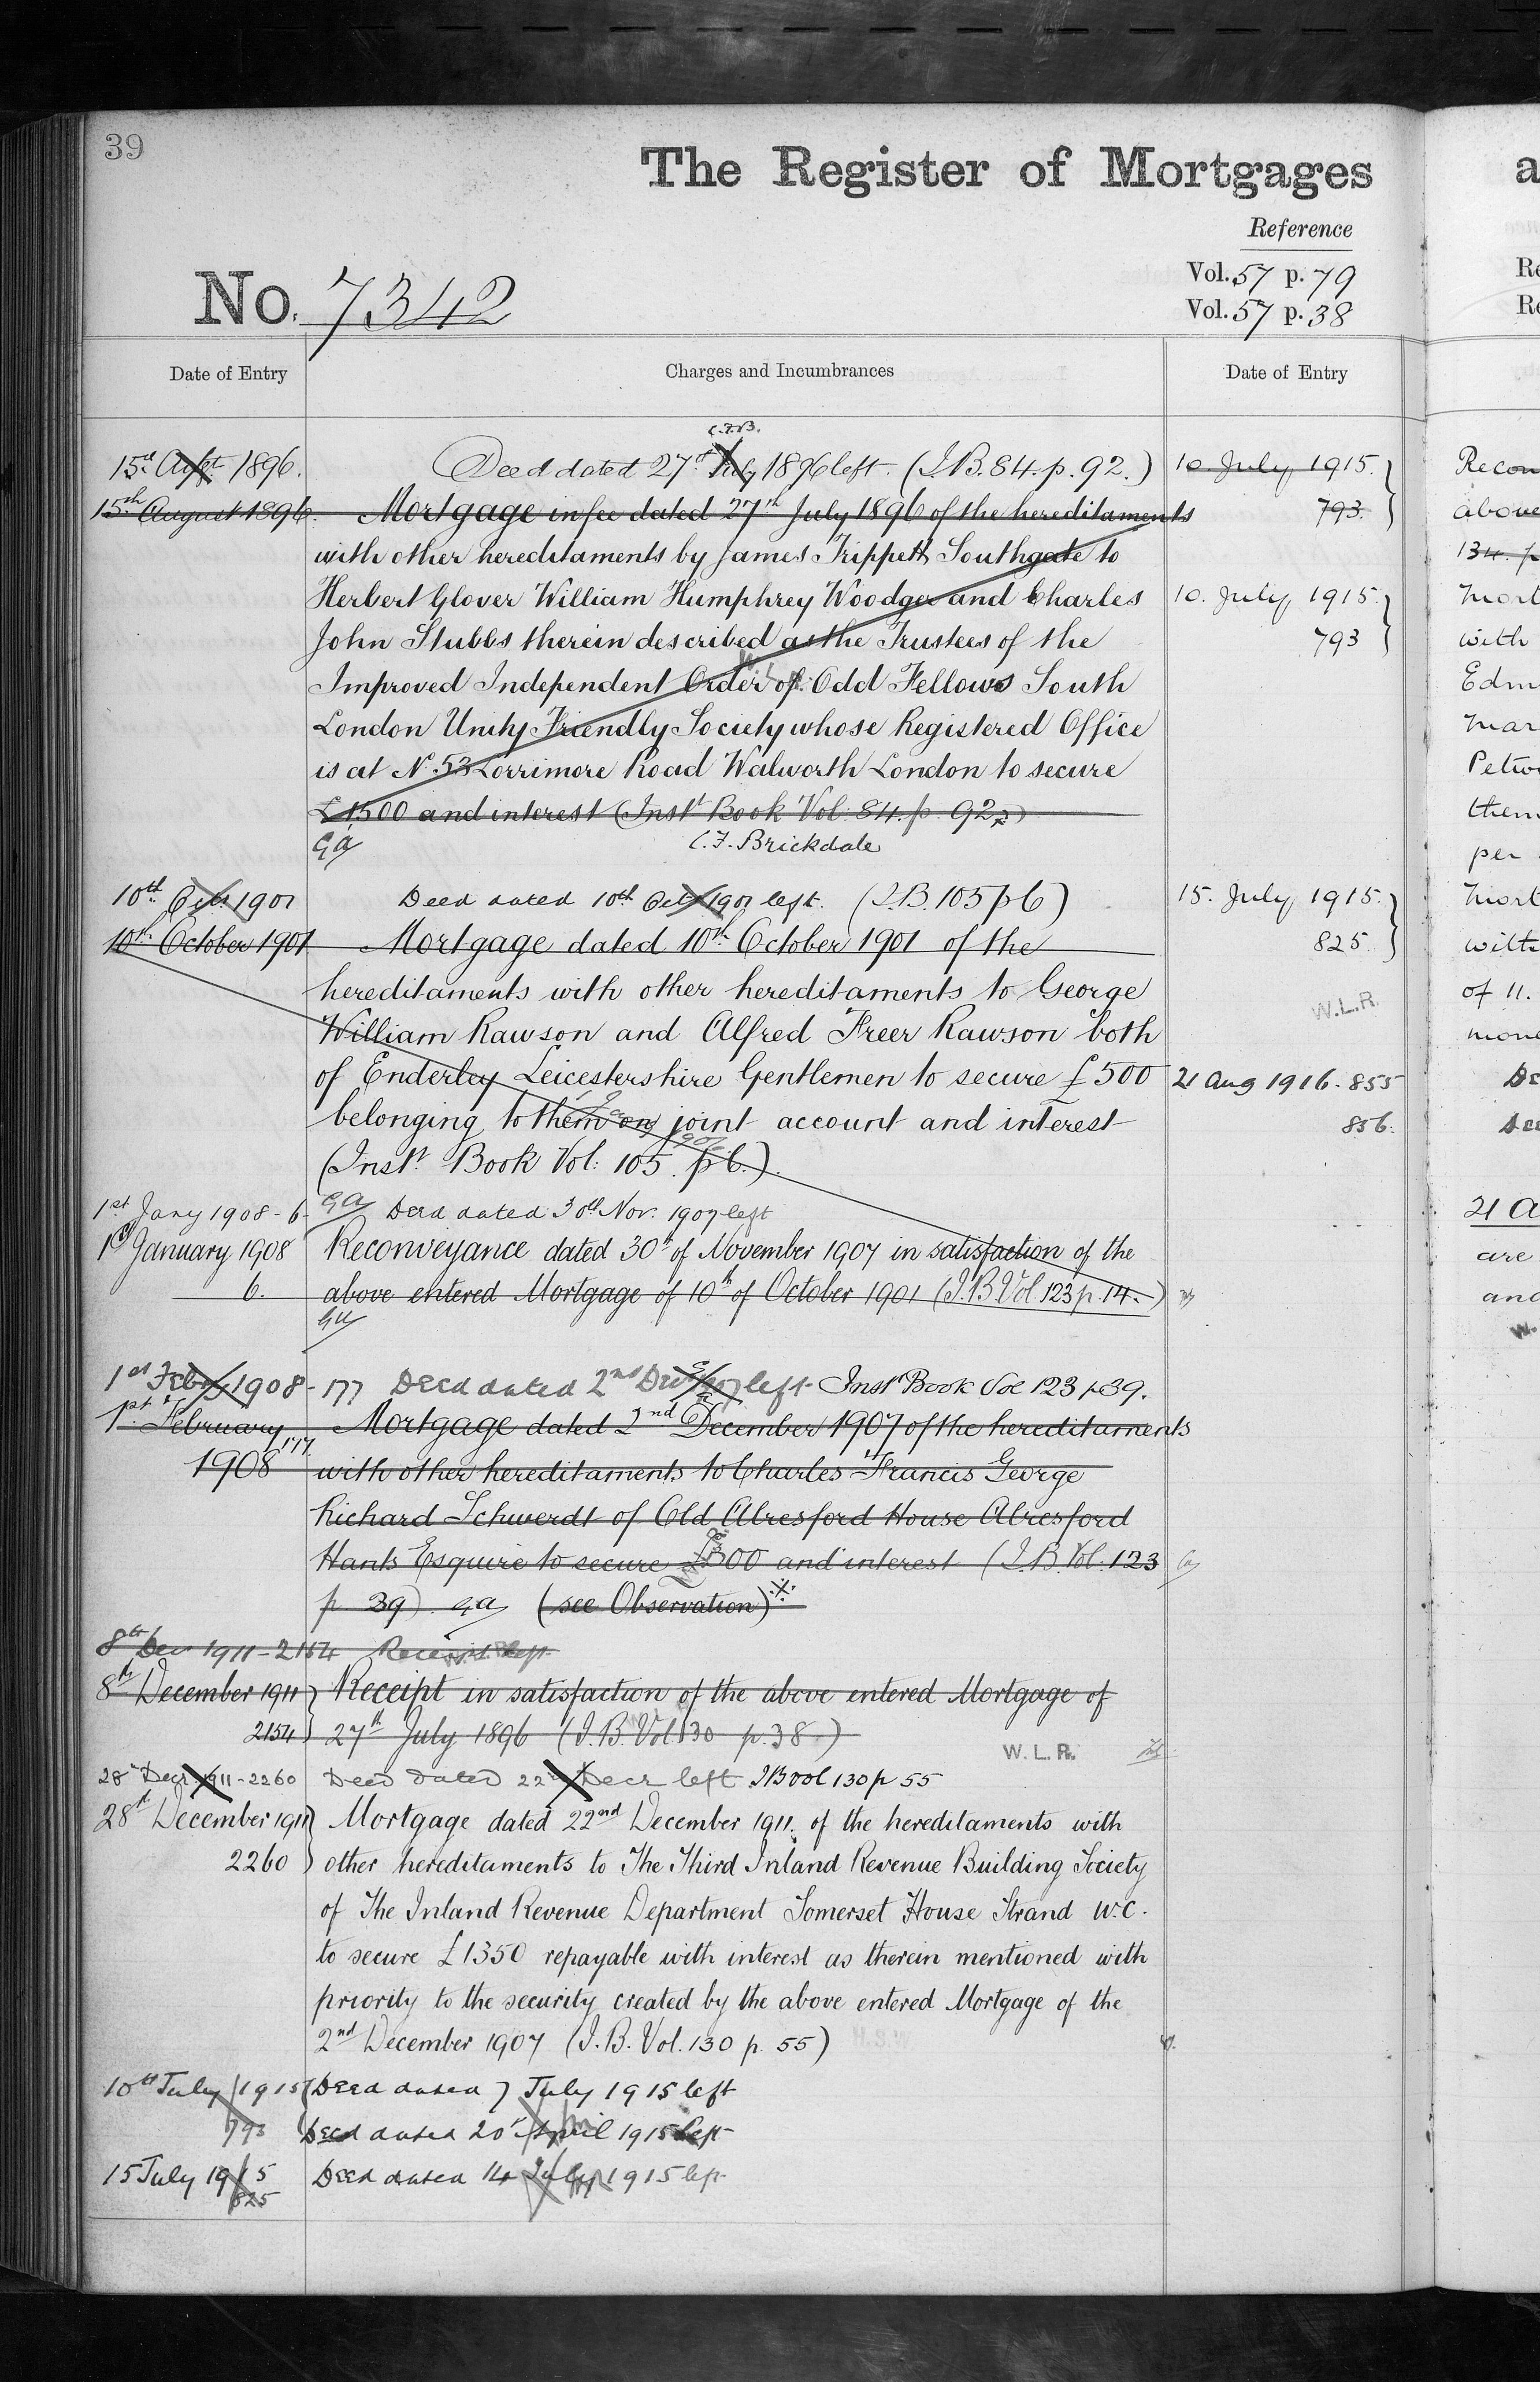 39
The Register of Mortgages
Reference
Vol. 57 p. 79
Vol. 57 p. 38
No. 7342
Date of Entry
Charges and Incumbrances
Date of Entry
C.F.B.
15th Augt 1896. Deed dated 27th July 1896 left. (I.B. 84. p. 92.)
15th August 1896. Mortgage in fee dated 27th July 1896 of the hereditaments
with other hereditaments by James Trippett Southgate to
Herbert Glover William Humphrey Woodger and Charles
John Stubbs therein described as the Trustees of the
Improved Independent Order of Odd Fellows South
London Unity Friendly Society whose Registered Office
is at No. 53 Lorrimore Road Walworth London to secure
£1500 and interest (Inst Book Vol. 84. p. 92)
GA C.F. Brickdale
10th Octr 1901 Deed dated 10th Oct 1901 left. (I.B. 105 p 6)
10th October 1901 Mortgage dated 10th October 1901 of the
hereditaments with other hereditaments to George
William Rawson and Alfred Freer Rawson both
of Enderley Leicestershire Gentlemen to secure £500
belonging to them on joint account and interest
(Inst. Book Vol: 105. p 6.)
1st Jany 1908 - 6 GA Deed dated 30th Nov. 1907 left
1st January 1908 Reconveyance dated 30th of November 1907 in satisfaction of the
6. above entered Mortgage of 10th of October 1901 (I.B Vol. 123 p. 14.)
GA
1st Feby 1908 - 177 Deed dated 2nd Dec 1907 left Inst Book Vol 123 p 39.
1st February Mortgage dated 2nd December 1907 of the hereditaments
1908 177 with other hereditaments to Charles Francis George
Richard Schwerdt of Old Alresford House Alresford
Hants Esquire to secure £300 and interest (I.B. Vol. 123
p 39) GA (see Observation)
8th Decr 1911 - 2154 Receipt left
8th December 1911 Receipt in satisfaction of the above entered Mortgage of
2154 27th July 1896 (I.B. Vol. 130 p. 38)
W.L.R.
28th Decr 1911 - 2260 Deed dated 22nd Decr left I B vol 130 p 55
28th December 1911 Mortgage dated 22nd December 1911 of the hereditaments with
2260 other hereditaments to The Third Inland Revenue Building Society
of The Inland Revenue Department Somerset House Strand W.C.
to secure £1350 repayable with interest as therein mentioned with
priority to the security created by the above entered Mortgage of the
2nd December 1907 (I.B. Vol. 130 p 55)
10th July 1915 Deed dated 7 July 1915 left
793 Deed dated 20 April 1915 left
15 July 1915 Deed dated 14 July 1915 left
825
10 July 1915.
793.
10. July 1915.
793
15. July 1915.
825.
W.L.R.
21 Aug 1916. 855
856.
a
Re
Re
Recon
above
134. p
Mort
with
Edm
Mar
Petw
them
per
Mort
with
of 11.
mone
De
21 A
are
and
W.